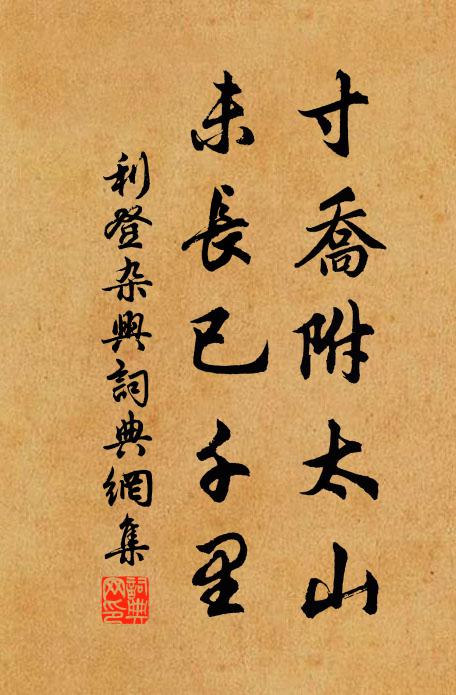 寸喬附太山
未長已千里
利登杂興詞典網集
詞典
网印